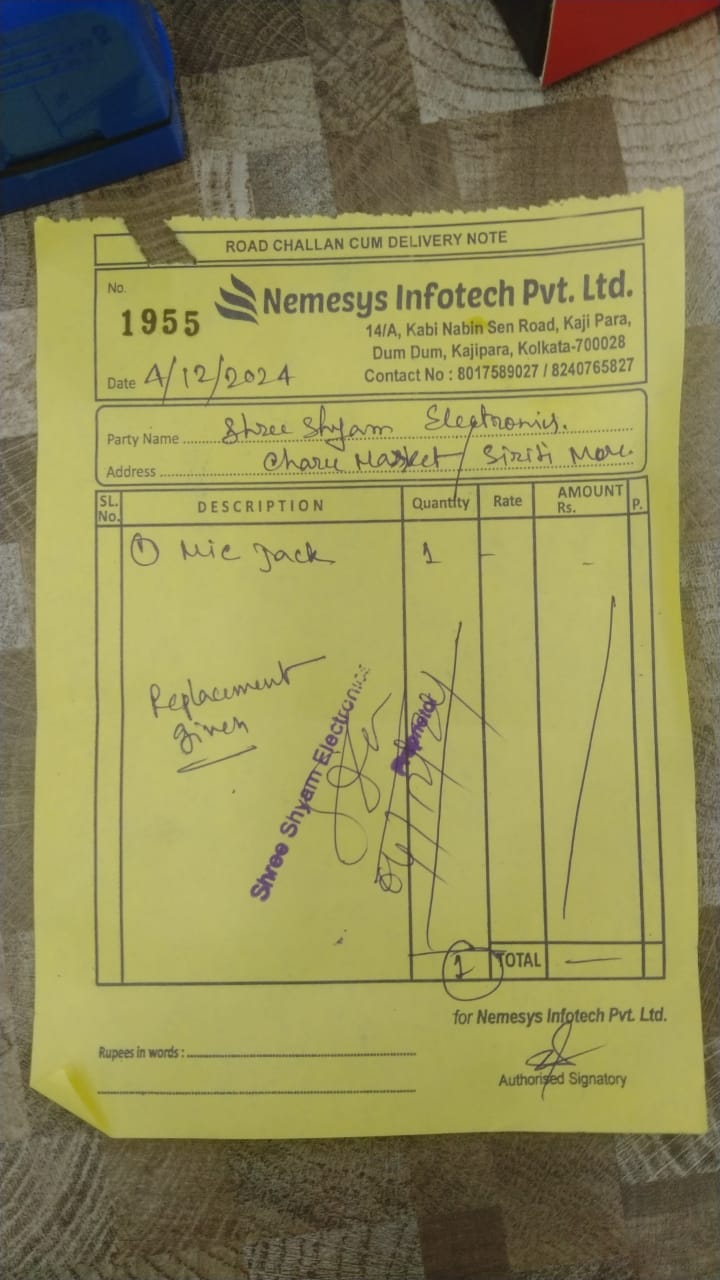 ROAD CHALLAN CUM DELIVERY NOTE
No.
1955
Nemesys Infotech Pvt. Ltd.
14/A, Kabi Nabin Sen Road, Kaji Para,
Dum Dum, Kajipara, Kolkata-700028
Contact No : 8017589027 / 8240765827
Date 4/12/2024
Party Name Shree Shyam Electronics.
Address Charu Market / Siriti More.
SL. No. DESCRIPTION Quantity Rate AMOUNT Rs. P.
① Mic Jack 1 - -
Replacement
given
Shree Shyam Electronics
Proprietor
1 TOTAL —
for Nemesys Infotech Pvt. Ltd.
Rupees in words :
Authorised Signatory